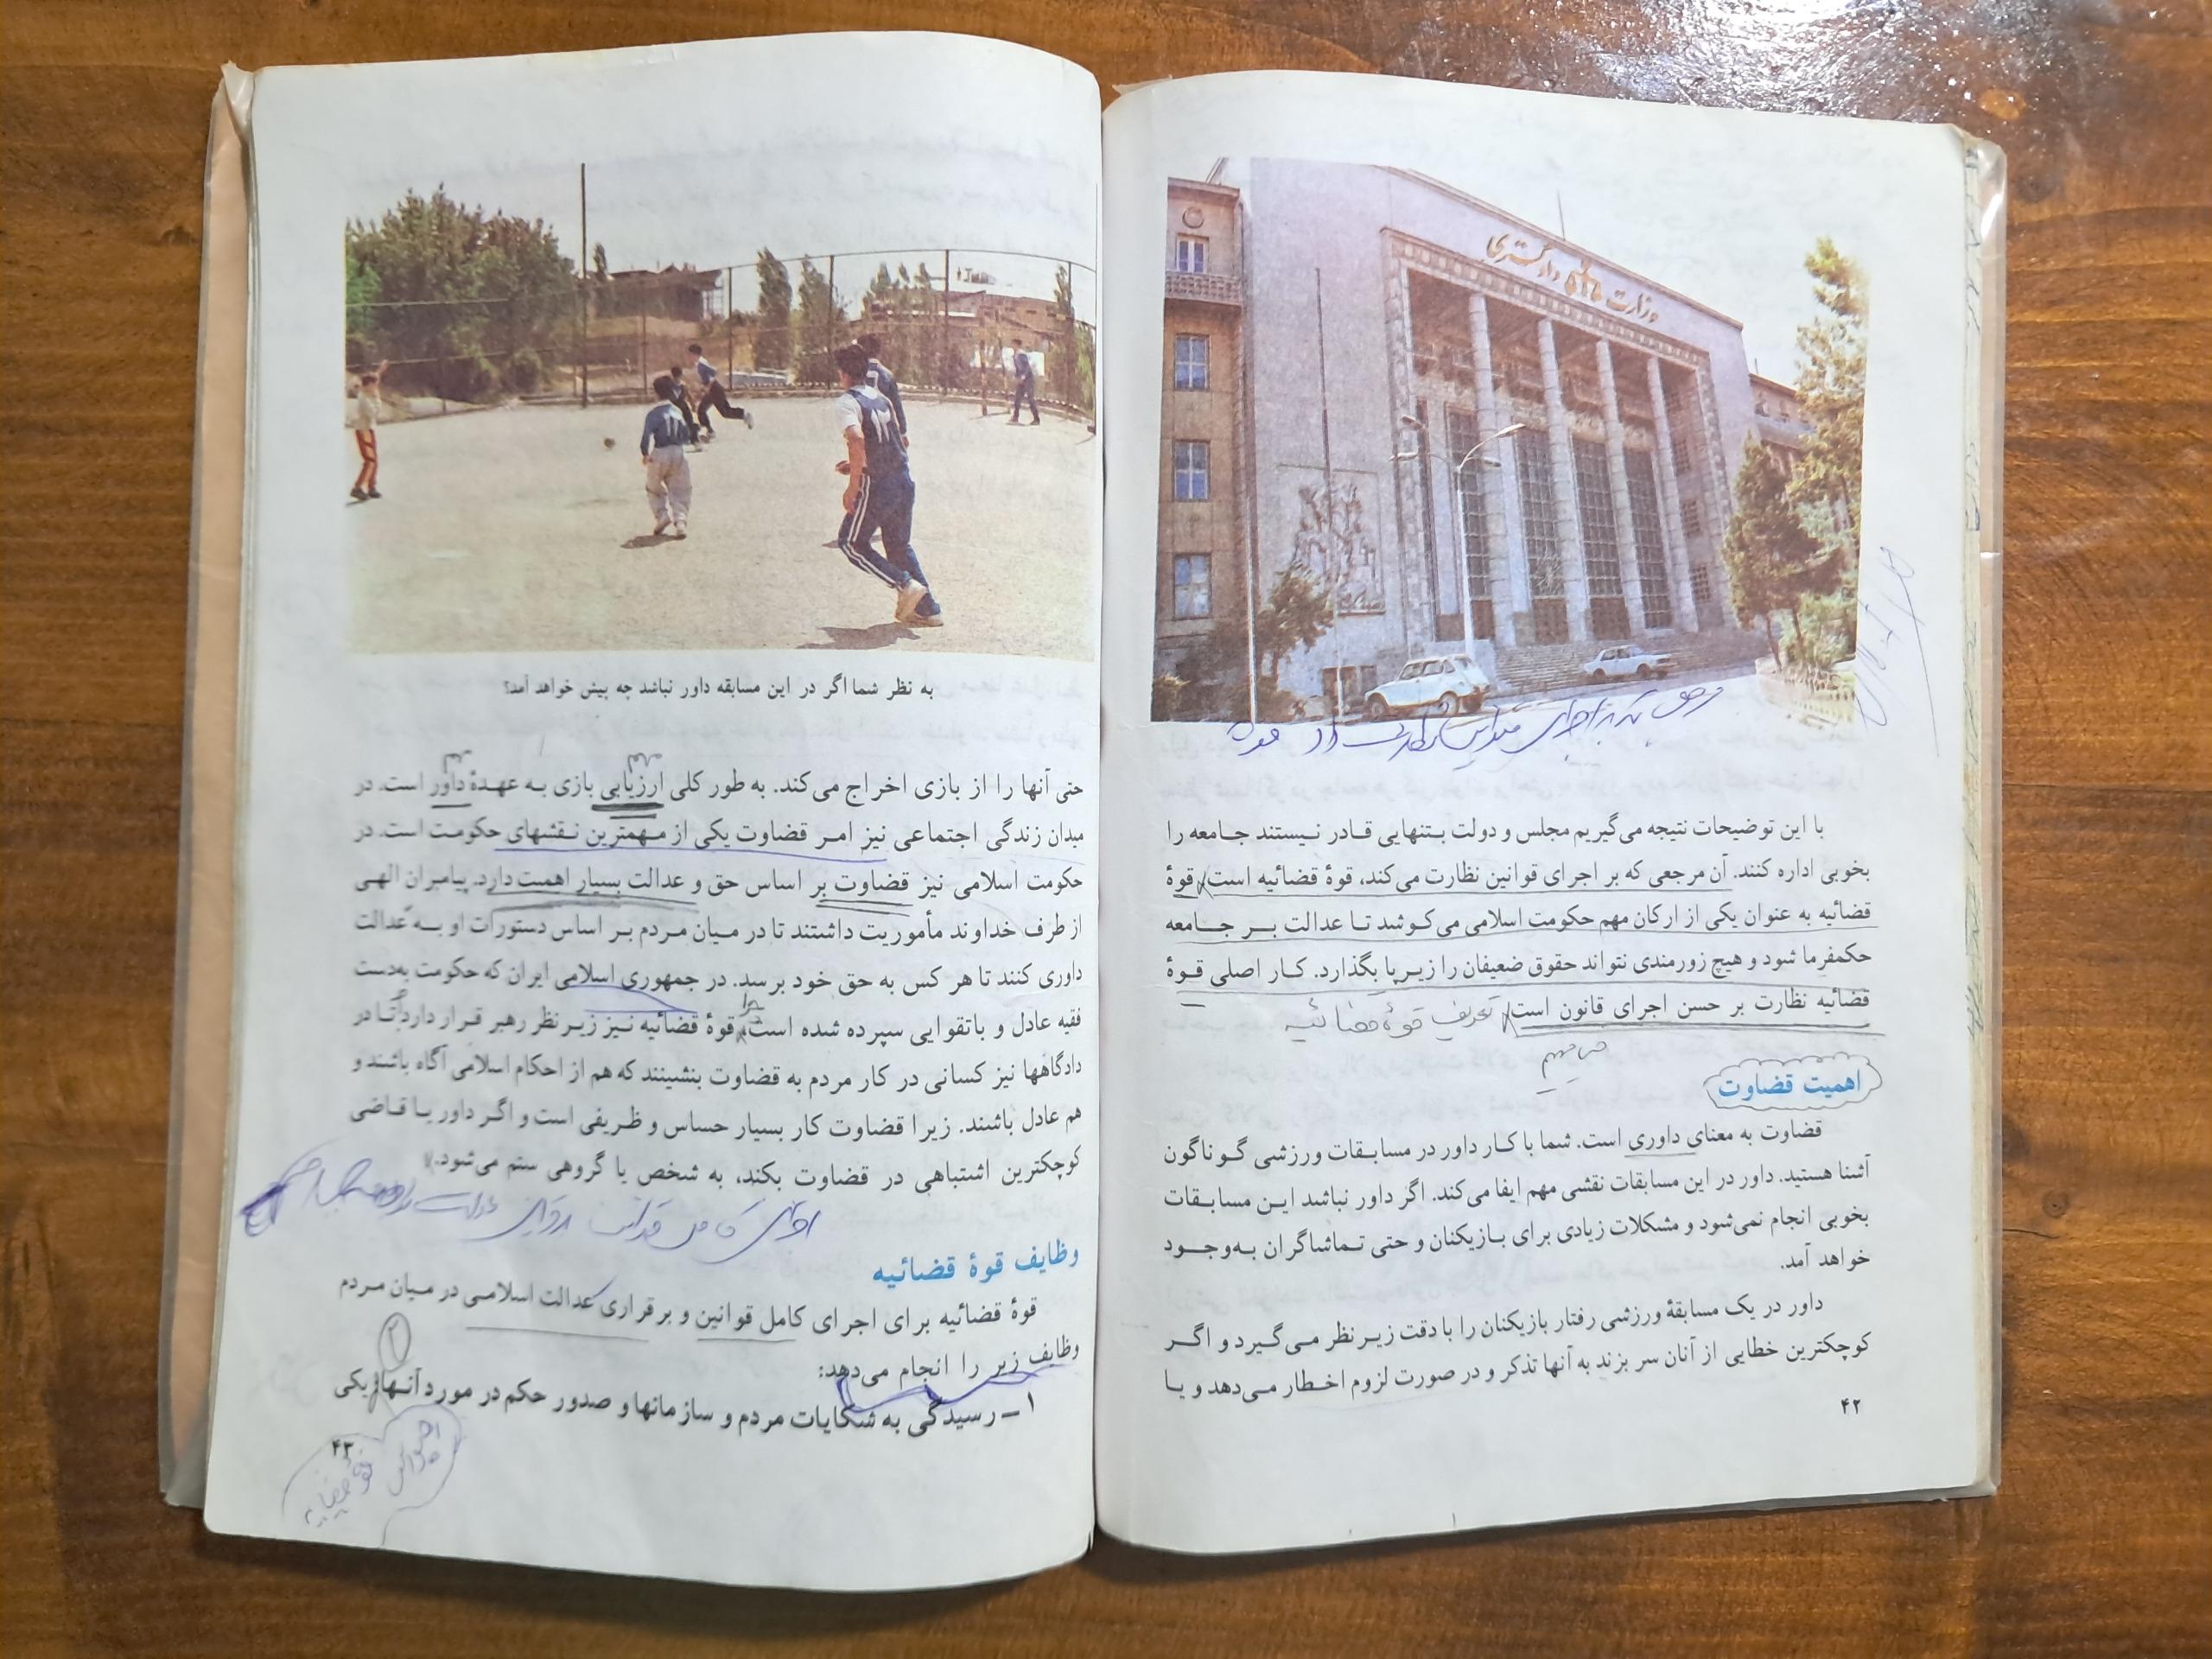 وزارت دادگستری
با این توضیحات نتیجه می‌گیریم مجلس و دولت بتنهایی قادر نیستند جامعه را
بخوبی اداره کنند. آن مرجعی که بر اجرای قوانین نظارت می‌کند، قوهٔ قضائیه است. قوهٔ
قضائیه به عنوان یکی از ارکان مهم حکومت اسلامی می‌کوشد تا عدالت بر جامعه
حکمفرما شود و هیچ زورمندی نتواند حقوق ضعیفان را زیرپا بگذارد. کار اصلی قوهٔ
قضائیه نظارت بر حسن اجرای قانون است. تعریف قوهٔ قضائیه
اهمیت قضاوت
قضاوت به معنای داوری است. شما با کار داور در مسابقات ورزشی گوناگون
آشنا هستید. داور در این مسابقات نقشی مهم ایفا می‌کند. اگر داور نباشد این مسابقات
بخوبی انجام نمی‌شود و مشکلات زیادی برای بازیکنان و حتی تماشاگران به‌وجود
خواهد آمد.
داور در یک مسابقهٔ ورزشی رفتار بازیکنان را با دقت زیرنظر می‌گیرد و اگر
کوچکترین خطایی از آنان سر بزند به آنها تذکر و در صورت لزوم اخطار می‌دهد و یا
۴۲
به نظر شما اگر در این مسابقه داور نباشد چه پیش خواهد آمد؟
مهم
حتی آنها را از بازی اخراج می‌کند. به طور کلی ارزیابی بازی به عهدهٔ داور است. در
میدان زندگی اجتماعی نیز امر قضاوت یکی از مهمترین نقشهای حکومت است. در
حکومت اسلامی نیز قضاوت بر اساس حق و عدالت بسیار اهمیت دارد. پیامبران الهی
از طرف خداوند مأموریت داشتند تا در میان مردم بر اساس دستورات او به عدالت
داوری کنند تا هر کس به حق خود برسد. در جمهوری اسلامی ایران که حکومت به‌دست
چرا
فقیه عادل و باتقوایی سپرده شده است، قوهٔ قضائیه نیز زیرنظر رهبر قرار دارد تا در
دادگاهها نیز کسانی در کار مردم به قضاوت بنشینند که هم از احکام اسلامی آگاه باشند و
هم عادل باشند. زیرا قضاوت کار بسیار حساس و ظریفی است و اگر داور یا قاضی
کوچکترین اشتباهی در قضاوت بکند، به شخص یا گروهی ستم می‌شود.
وظایف قوهٔ قضائیه
قوهٔ قضائیه برای اجرای کامل قوانین و برقراری عدالت اسلامی در میان مردم
وظایف زیر را انجام می‌دهد:
۲
۱ – رسیدگی به شکایات مردم و سازمانها و صدور حکم در مورد آنها: یکی
۴۳
قوه قضائیه